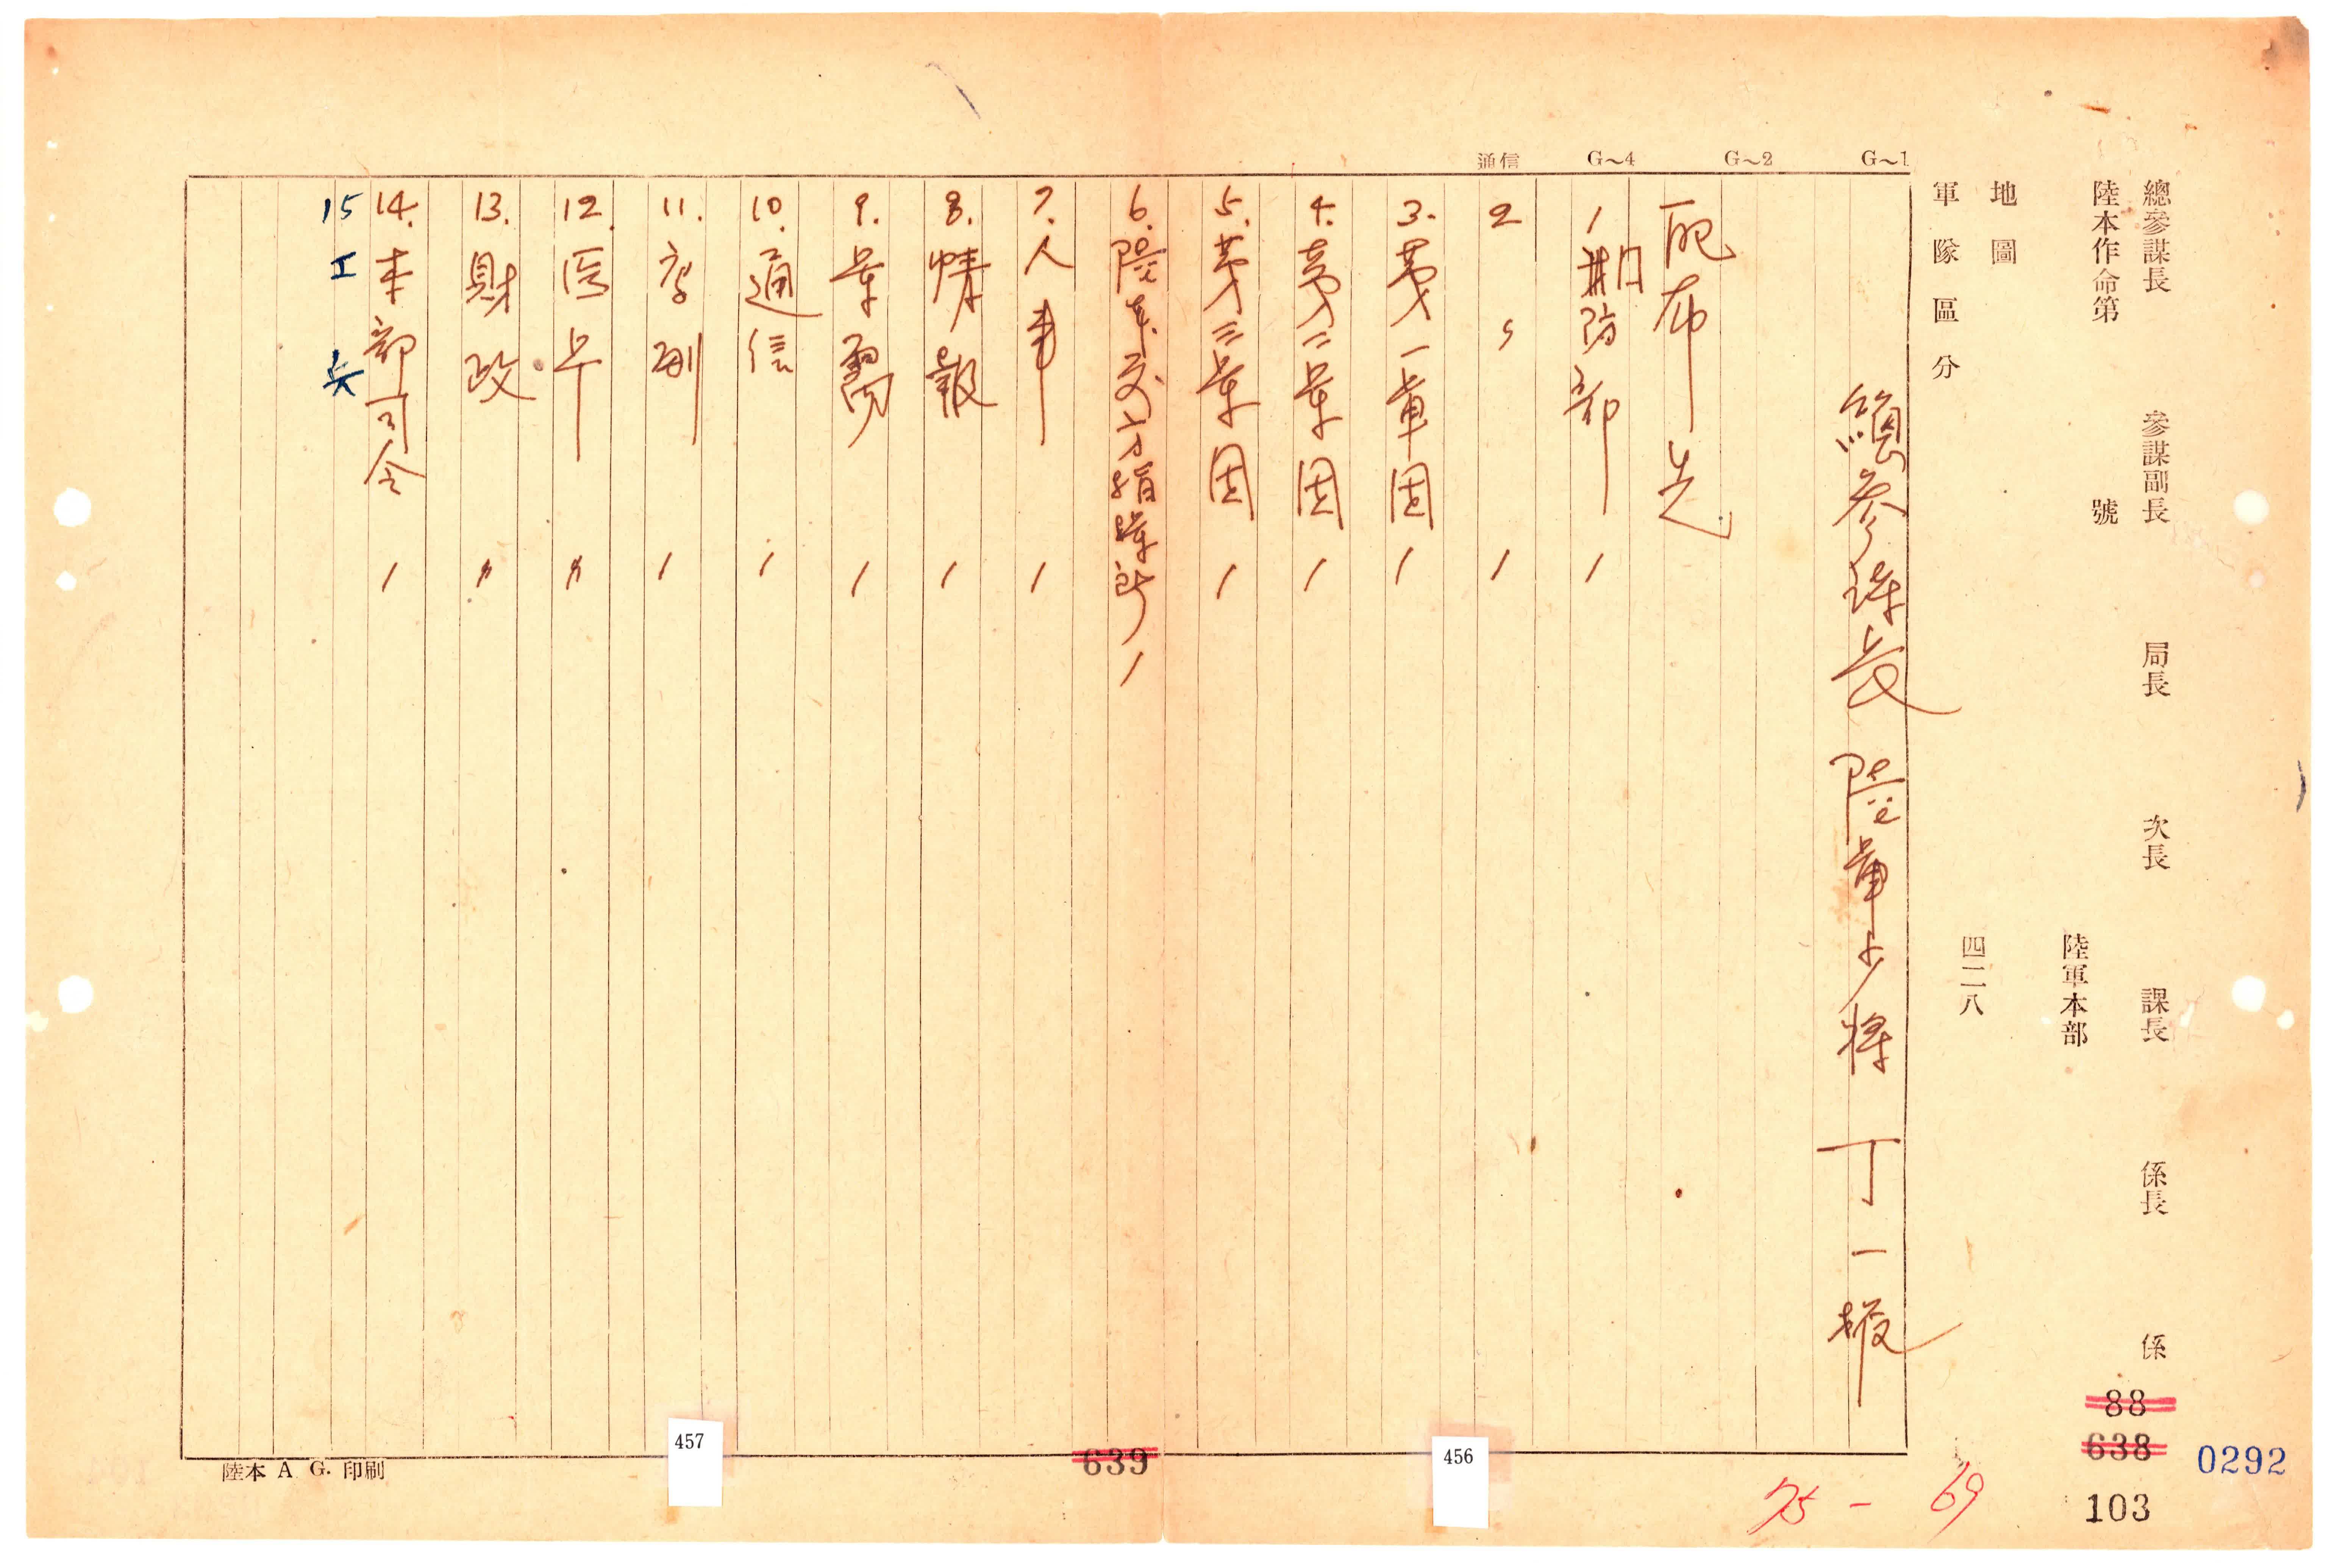 總參謀長 參謀副長 局長 次長 課長 係長 係
陸本作命第 號
陸軍本部
地圖
四二八
軍隊區分
G~1
G~2
G~4
通信
總參謀長 陸軍少將 丁一權
配布先
1 國防部 1
2 〃 1
3. 第一軍团 1
4. 第二軍团 1
5. 第三軍团 1
6. 陸本 前方指揮所 1
7. 人事 1
8. 情報 1
9. 軍務 1
10. 通信 1
11. 高副 1
12. 医務 〃
13. 財政 〃
14. 本部司令 1
15 工兵
陸本 A G. 印刷
457
639
456
75 - 69
88
638
103
0292